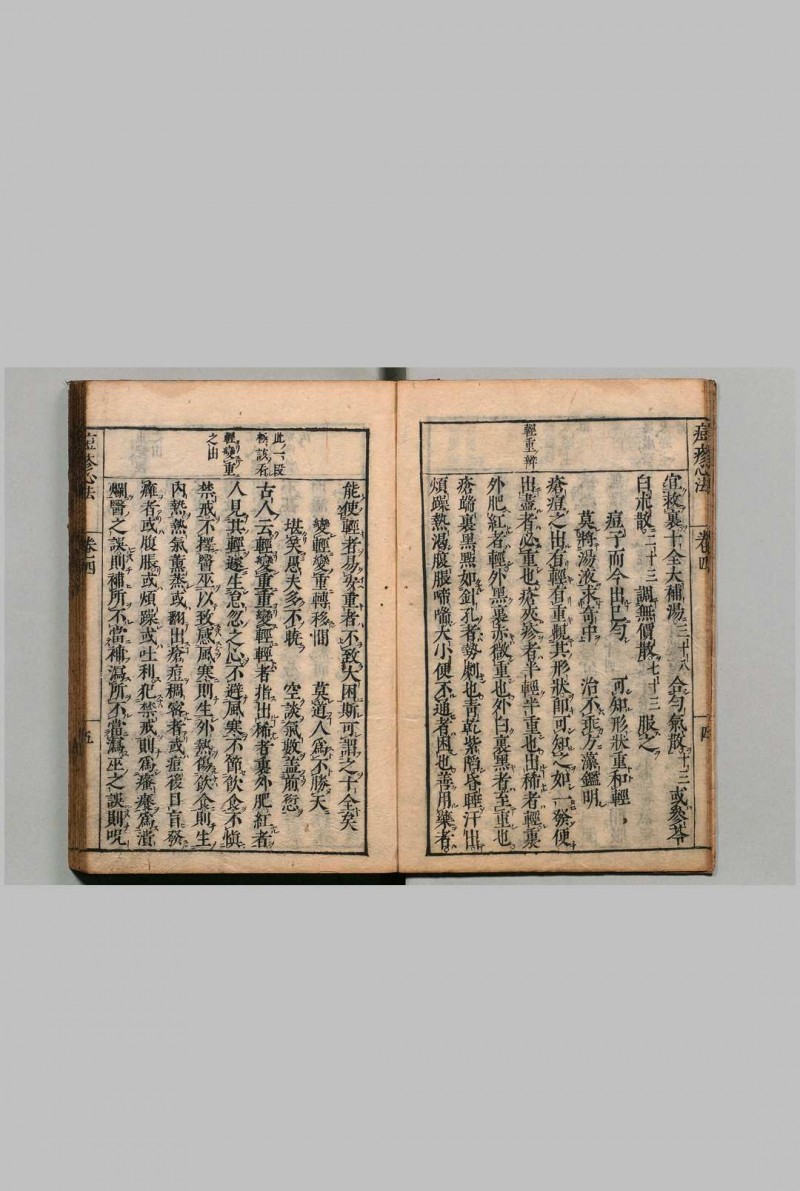 痘疹心法 卷四 四
輕重辨
宜救裏十全大補湯三十八合勻氣散十三或參苓
白朮散二十三調無價散七十三服之
痘子而今出已勻 可知形狀重和輕
莫將湯液求奇中 治不乖方藻鑑明
瘡痘之出有輕有重覩其形狀卽可知之如一發便
出盡者必重也瘡夾疹者半輕半重也出稀者輕裏
外肥紅者輕外黑裏赤微重也外白裏黑者至重也
瘡端裏黑點如針孔者勢劇也靑乾紫陷昏睡汗出
煩躁熱渴腹脹啼喘大小便不通者困也善用藥者
能使輕者易安重者不致大困斯可謂之十全矣
此一段
極該看
輕變重
之由
變輕變重轉移間 莫道人爲不勝天
堪笑愚夫多不曉 空談氣數蓋前愆
古人云輕變重重變輕輕者指出稀者裏外肥紅者
人見其輕遂生怠忽之心不避風寒不節飮食不愼
禁戒不擇醫巫以致感風寒則生外熱傷飮食則生
內熱熱氣薰蒸或翻出瘡痘稠密者或痘後目盲發
癰者或腹脹或煩躁或吐利犯禁戒則爲癢爲潰
爛醫之誤則補所不當補瀉所不當瀉巫之誤則呪
痘疹心法 卷四 五